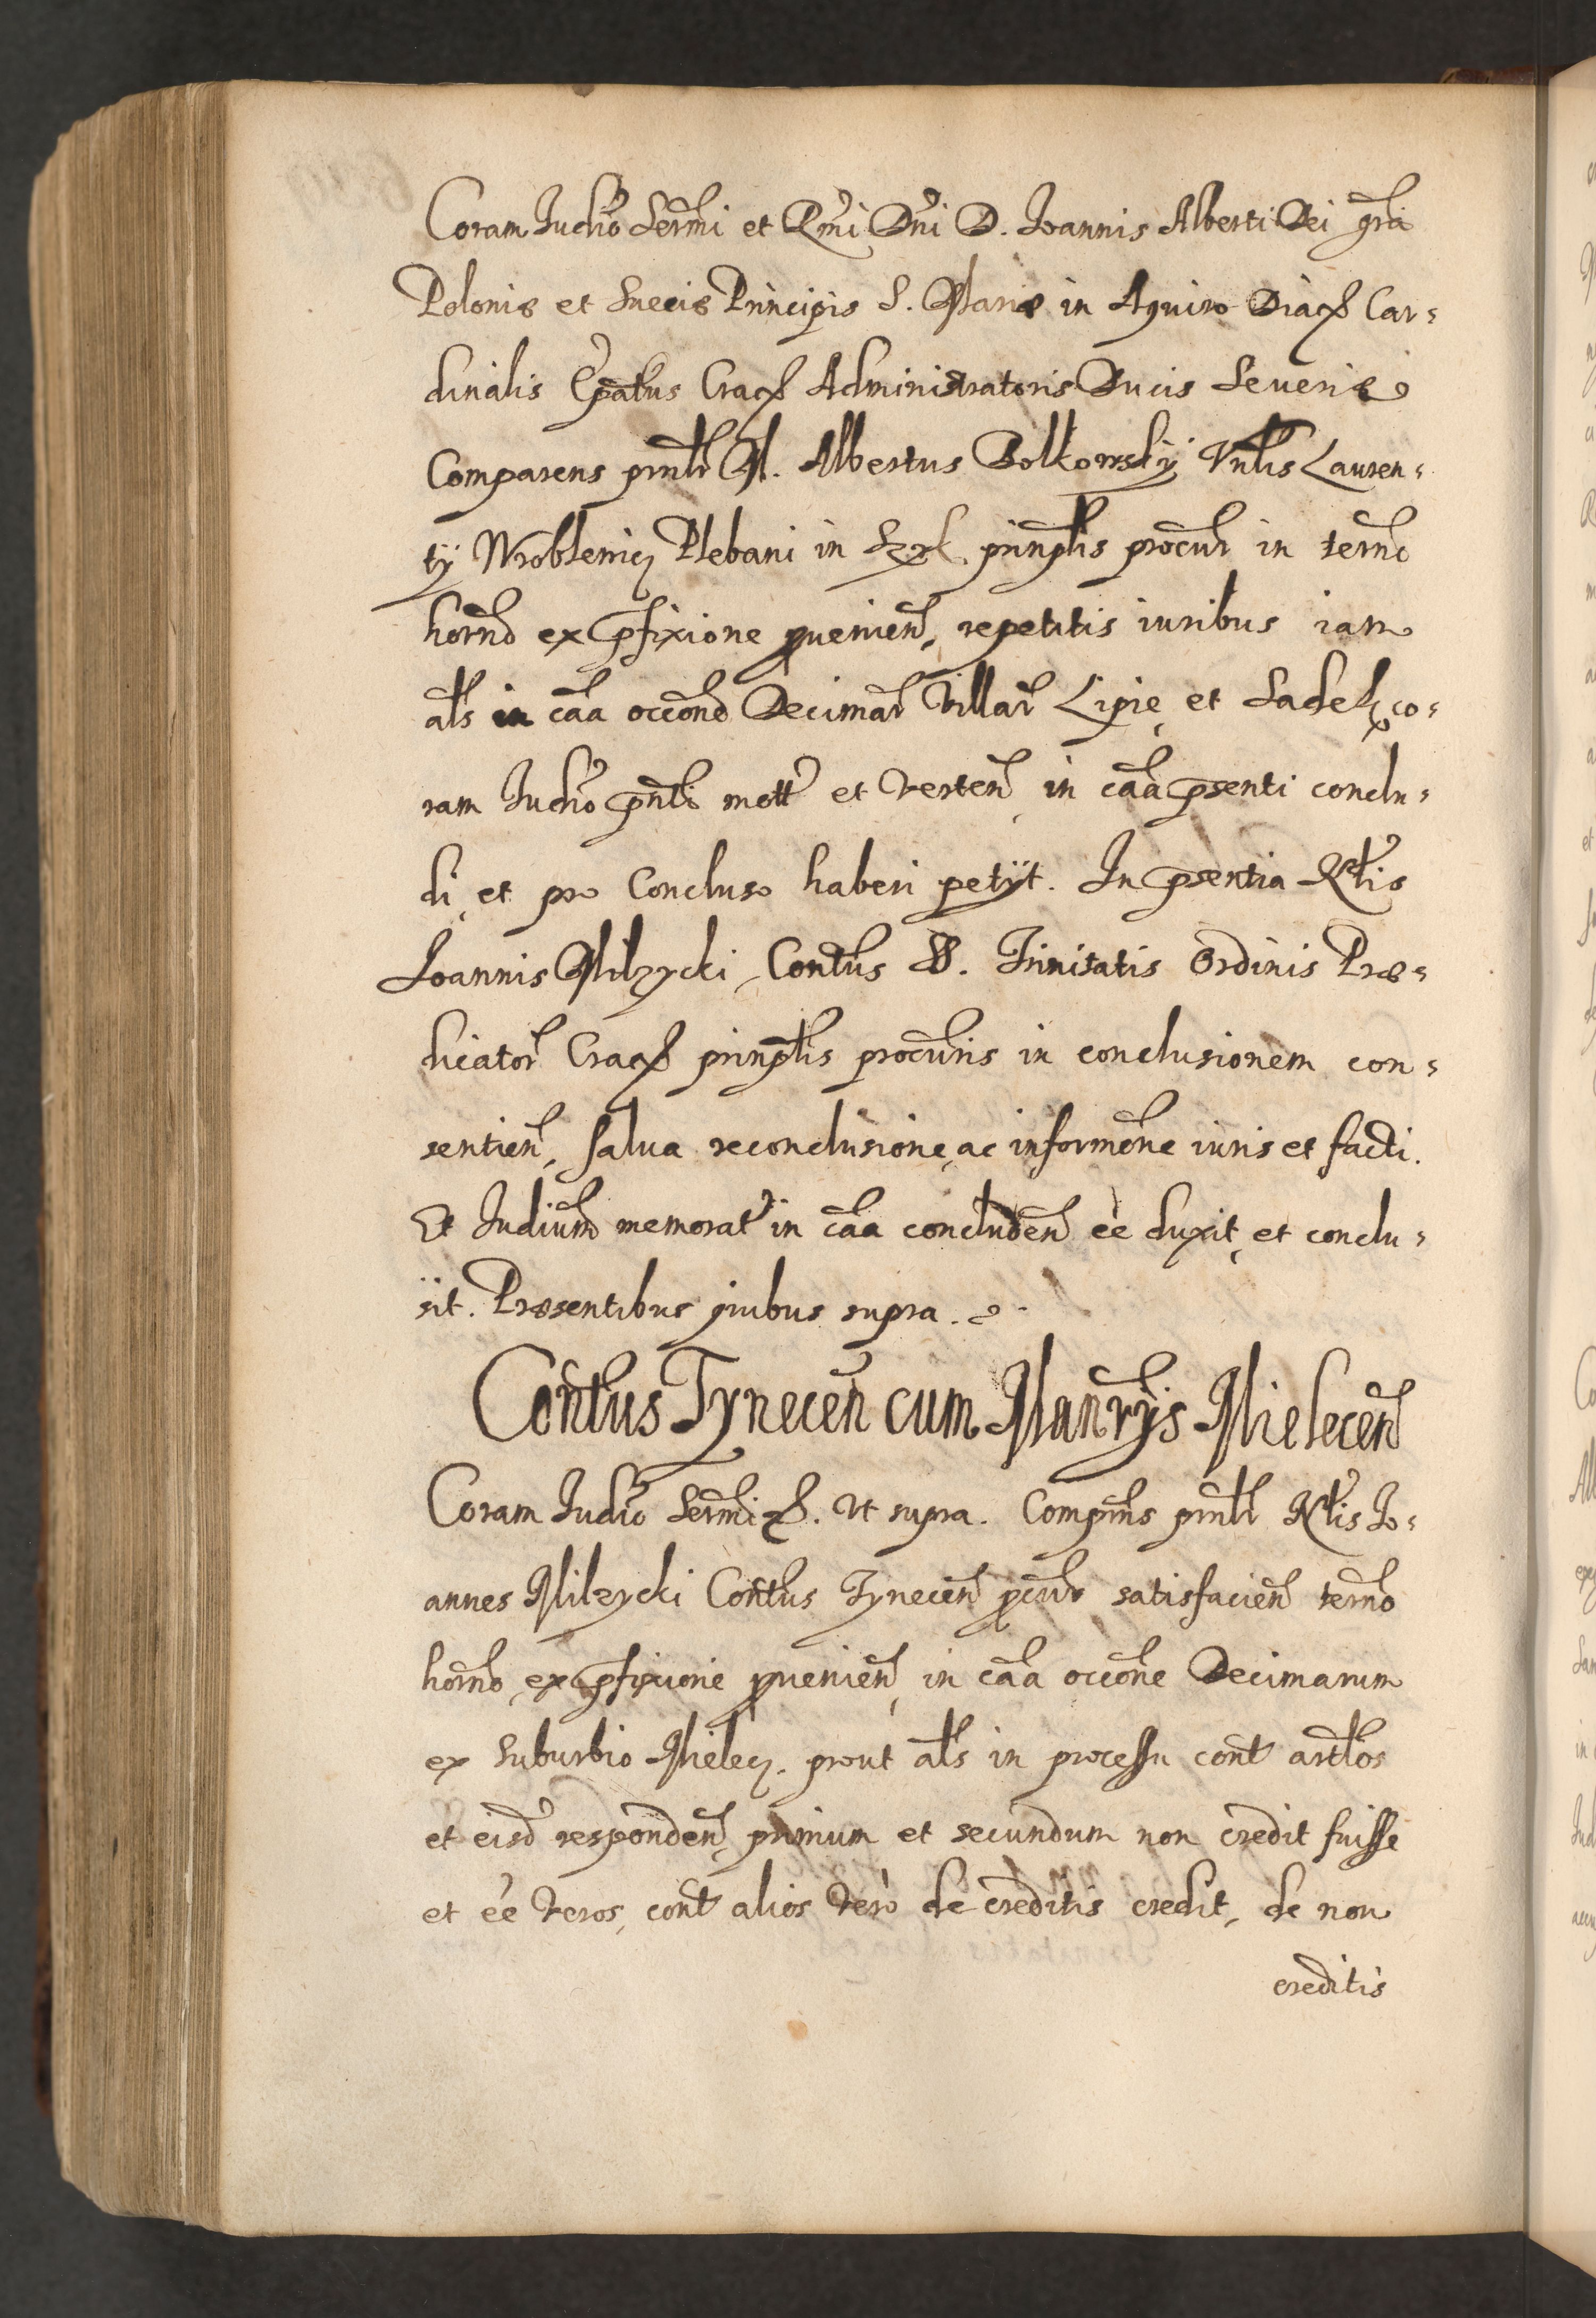 Coram Iudiõ Sermi et Rmi Dni D. Ioannis Alberti Dei gra
Poloniæ et Sueciæ Principis S. Mariæ in Aquiro Diac Car=
dinalis Epatus Crac Administratoris Ducis Seueriæ
Comparens pnltr M. Albertus Bolkowskÿ Vnlis Lauren=
tÿ Wroblewicz Plebani in prinplis procur in termo
horno ex pfixione pueniens, repetitis iuribus iam
als in caa occone Decimar Villar Lipie et Sadek, co=
ram Iudiõ pnti mott et verten in caa psenti conclu=
di, et pro Concluso haberi petÿt. In psentia Rtlis
Ioannis Milzycki, Contus SS. Trinitatis Ordinis Præ=
dicator Crac prinplis procuris in conclusionem con=
sentien, salua reconclusione, ac informone iuris et facti.
Et Iudium memorat in caa concluden ee duxit, et conclu=
sit. Præsentibus quibus supra.
Contus Tynecen cum Mansrÿs Mielecen
Coram Iudiõ Sermi &. vt supra. Compns pnltr Rtlis Io=
annes Milzycki Contus Tynecen pcur satisfacien termo
horno, ex pfixione puenien, in caa occone Decimarum
ex Suburbio Mielecz, prout als in processu cont artlos
et eisd responden, primum et secundum non credit fuisse
et ee veros, cont alios vero de creditis credit, de non
creditis